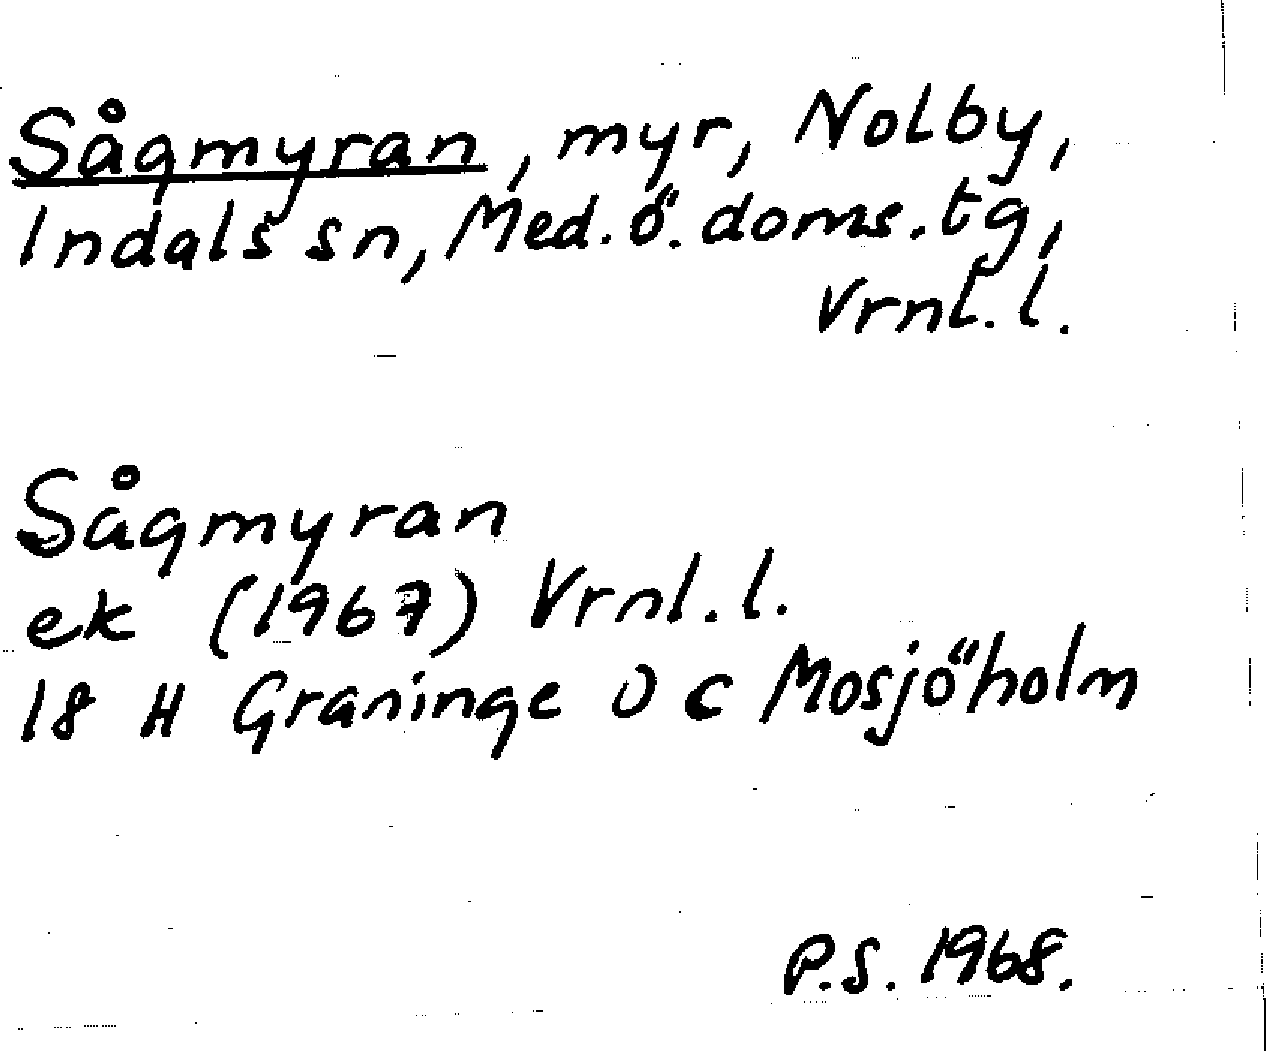 Sågmyran, myr, Nolby,
Indals sn, Med. ö. doms. tg,
Vrnl. l.
Sågmyran
ek (1967) Vrnl. l.
18 H Graninge 0 c Mosjöholm
P.S. 1968.